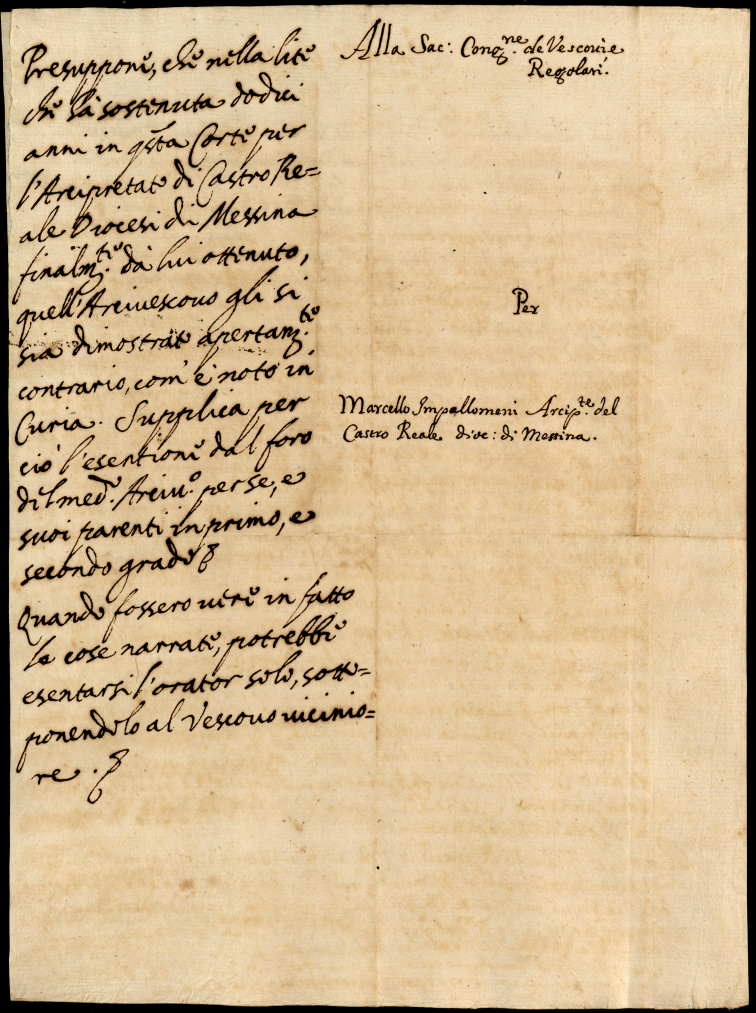 Presuppone, che nella lite
che hà sostenuta dodici
anni in qsta Corte per
l'Arcipretato di Castro Re=
ale Diocesi di Messina
finalm.te da lui ottenuto,
quell'Arciuescouo gli si
sia dimostrato apertam.te
contrario, com' è noto in
Curia. Supplica per
ciò l'esentione dal foro
del med.o Arciu.o per se, e
suoi parenti in primo, e
secondo grado
Quando fossero uere in fatto
le cose narrate, potrebbe
esentarsi l'orator solo, sotto=
ponendolo al Vescouo uicinio=
re.
Alla Sac: Cong.ne de Vescoui e
Regolari.
Per
Marcello Impallomeni Arcip.te del
Castro Reale dioc: di Messina.